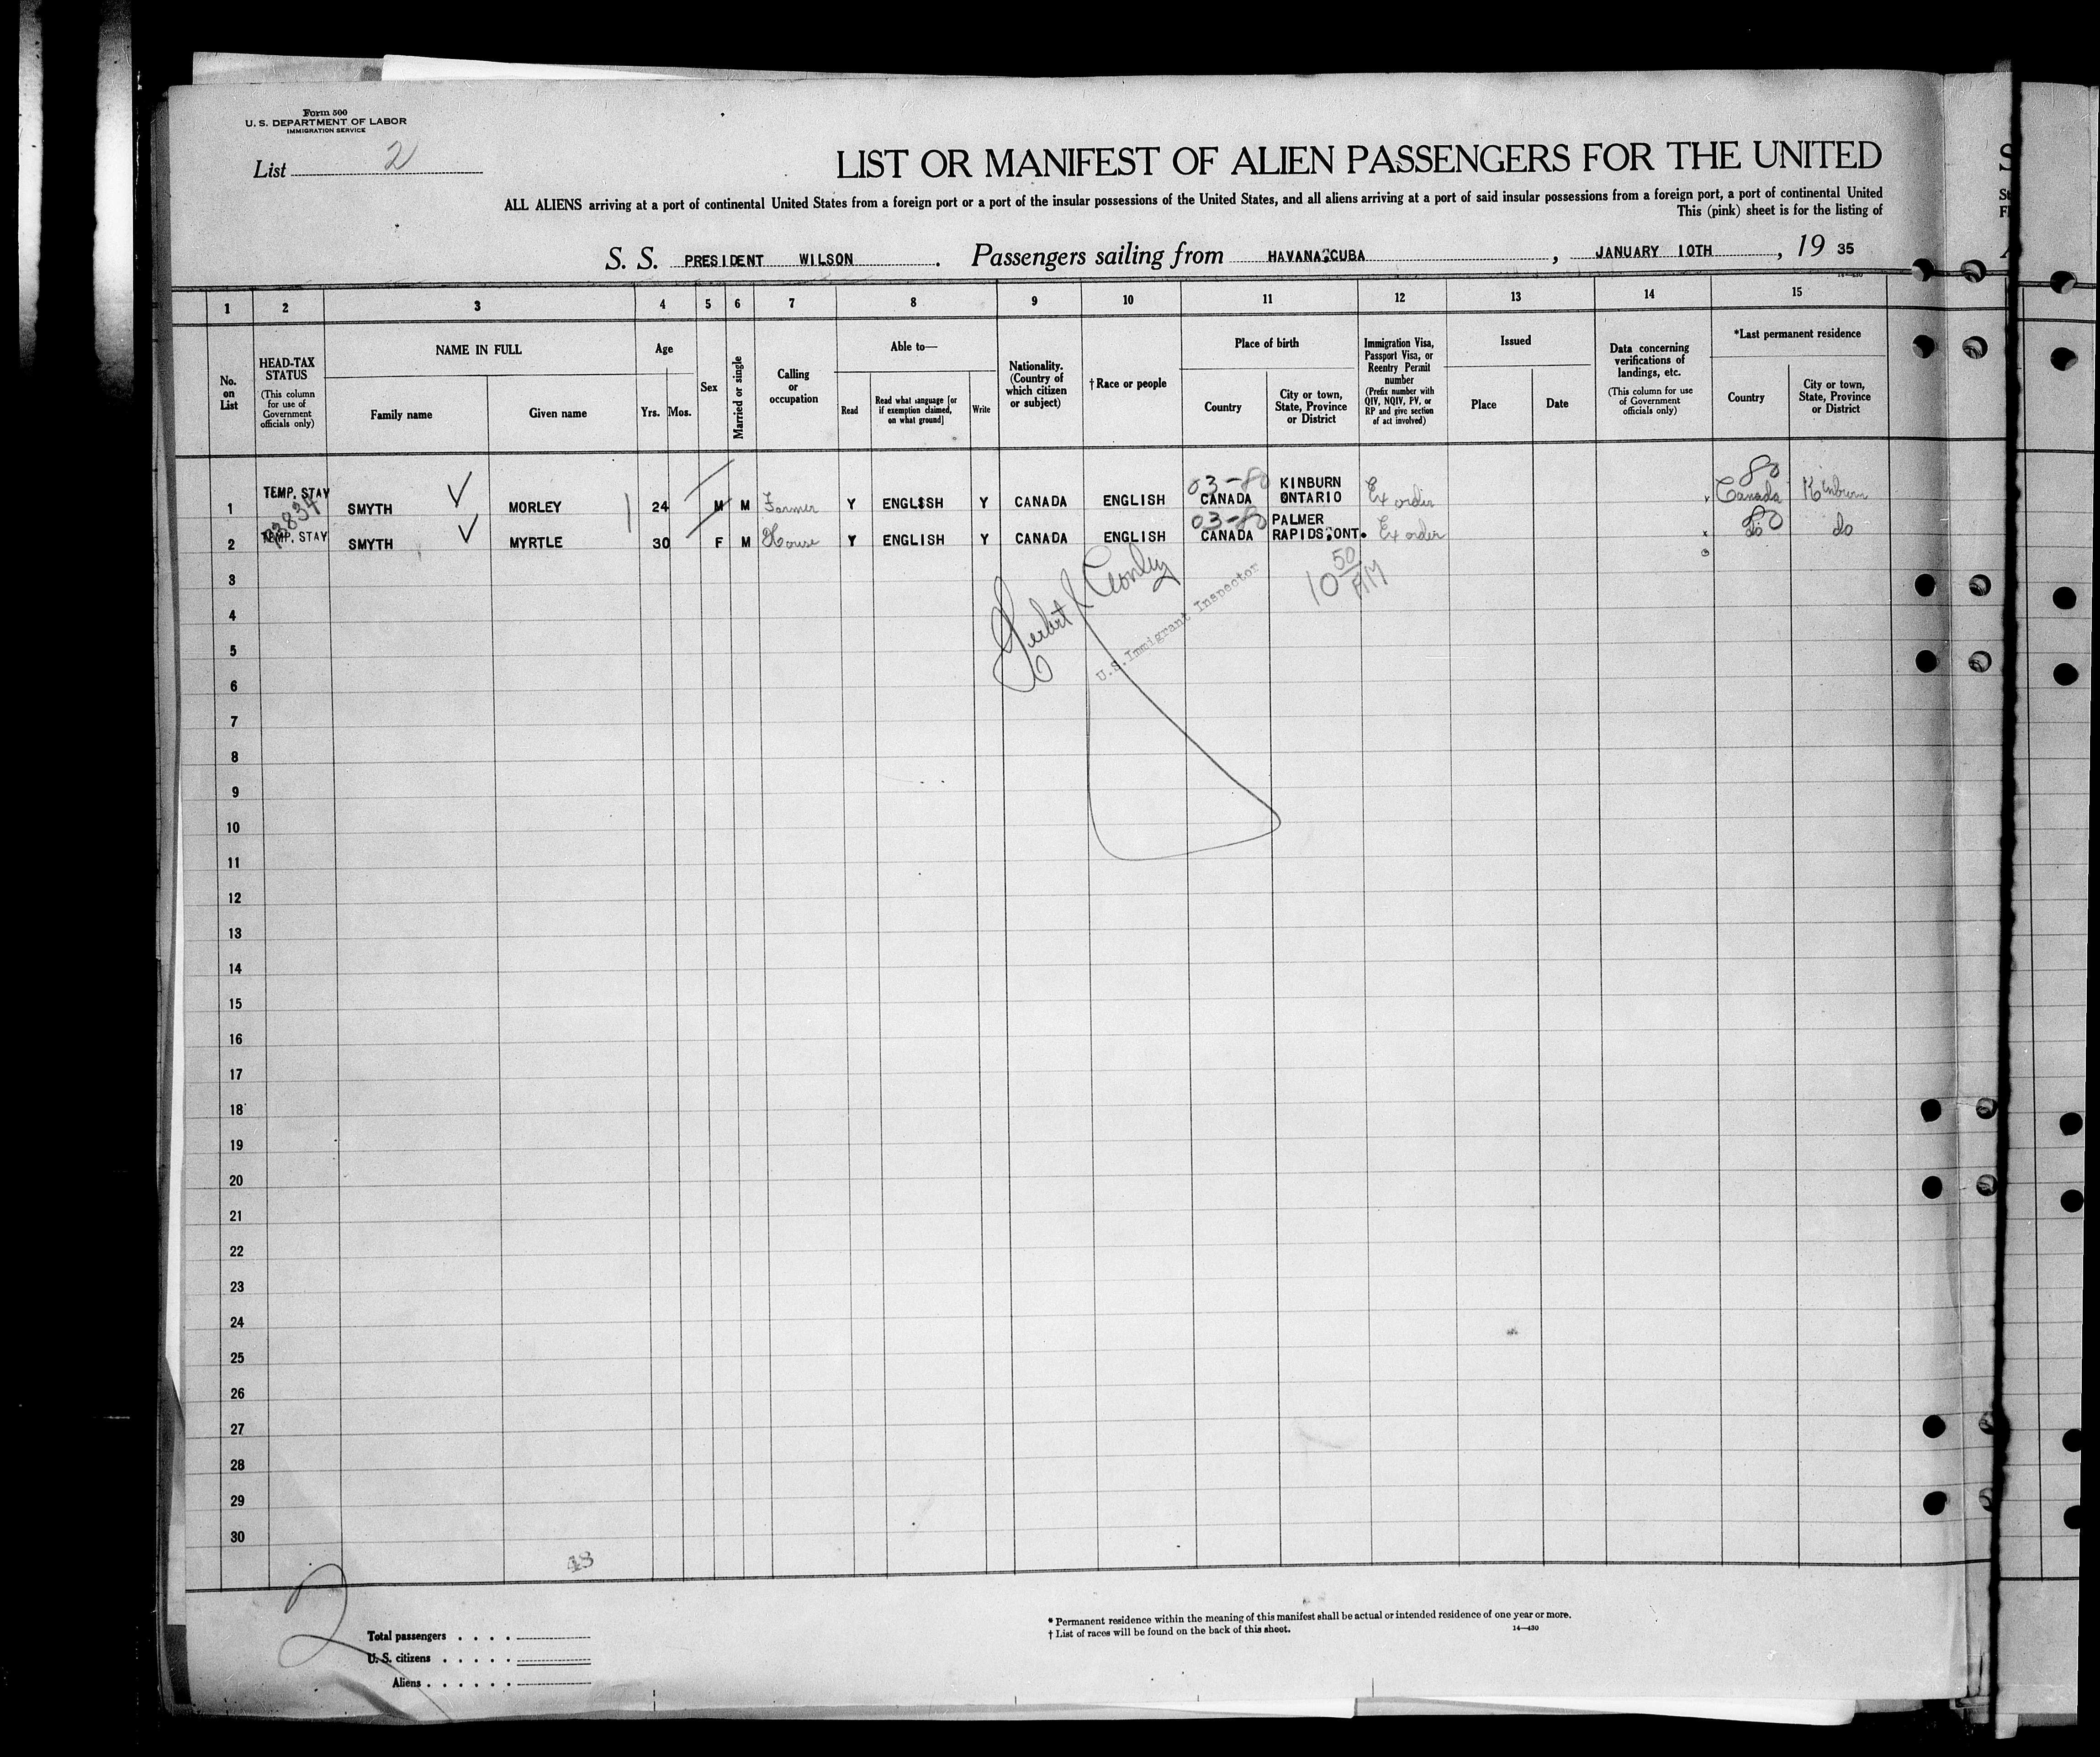 Form 500
U. S. DEPARTMENT OF LABOR
IMMIGRATION SERVICE
List 2
LIST OR MANIFEST OF ALIEN PASSENGERS FOR THE UNITED
ALL ALIENS arriving at a port of continental United States from a foreign port or a port of the insular possessions of the United States, and all aliens arriving at a port of said insular possessions from a foreign port, a port of continental United
This (pink) sheet is for the listing of
S. S. PRESIDENT WILSON. Passengers sailing from HAVANA:CUBA, JANUARY 10TH, 19 35
1 2 3 4 5 6 7 8 9 10 11 12 13 14 15
No. on List
HEAD-TAX STATUS (This column for use of Government officials only)
NAME IN FULL
Family name
Given name
Age
Yrs. Mos.
Sex
Married or single
Calling or occupation
Able to—
Read
Read what language [or if exemption claimed, on what ground]
Write
Nationality. (Country of which citizen or subject)
†Race or people
Place of birth
Country
City or town, State, Province or District
Immigration Visa, Passport Visa, or Reentry Permit number (Prefix number with QIV, NQIV, PV, or RP and give section of act involved)
Issued
Place
Date
Data concerning verifications of landings, etc. (This column for use of Government officials only)
*Last permanent residence
Country
City or town, State, Province or District
03-80 80
1 TEMP. STAY SMYTH MORLEY 24 M M Farmer Y ENGLSSH Y CANADA ENGLISH CANADA KINBURN ONTARIO Ex order Canada Kinburn
03-80 80
2 TEMP. STAY SMYTH MYRTLE 30 F M House Y ENGLISH Y CANADA ENGLISH CANADA PALMER RAPIDS:ONT. Ex order do do
10 50 AM
U. S. Immigrant Inspector
3
4
5
6
7
8
9
10
11
12
13
14
15
16
17
18
19
20
21
22
23
24
25
26
27
28
29
30
48
2
Total passengers
U. S. citizens
Aliens
* Permanent residence within the meaning of this manifest shall be actual or intended residence of one year or more.
† List of races will be found on the back of this sheet.
14—430